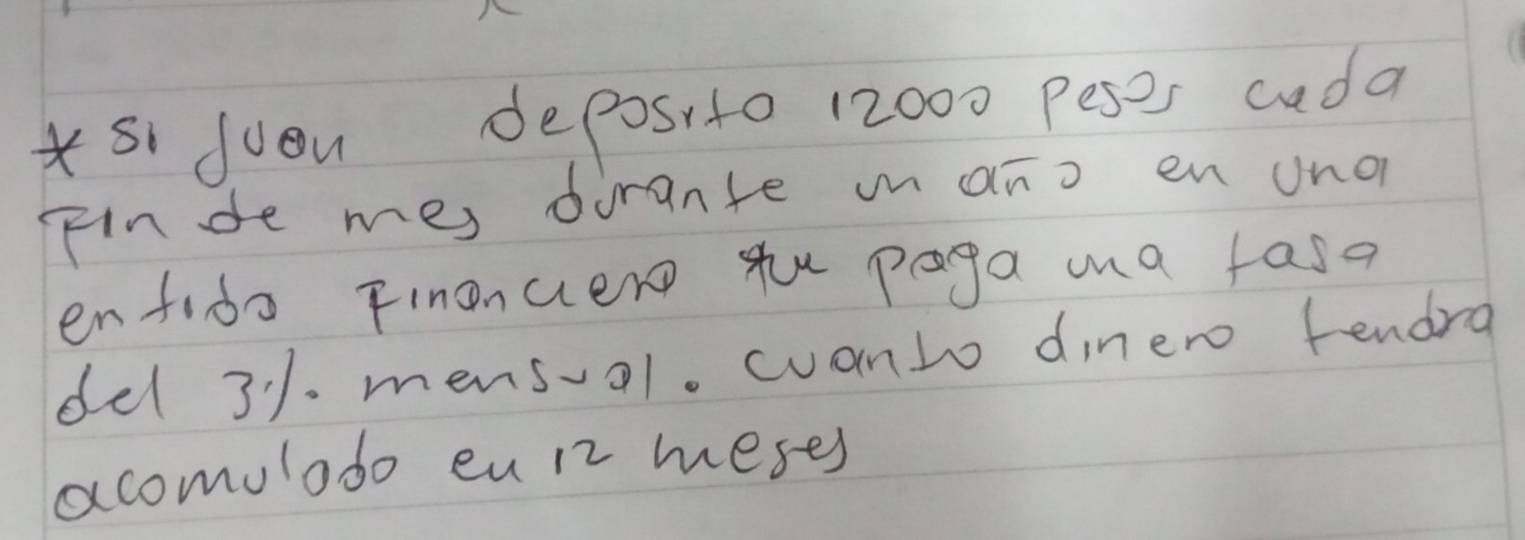 * Si Juan deposito 12000 pesos cada
Fin de mes durante un año en una
entidad Financiera que paga una tasa
del 3%. mensual. cuanto dinero tendra
acomulado en 12 meses